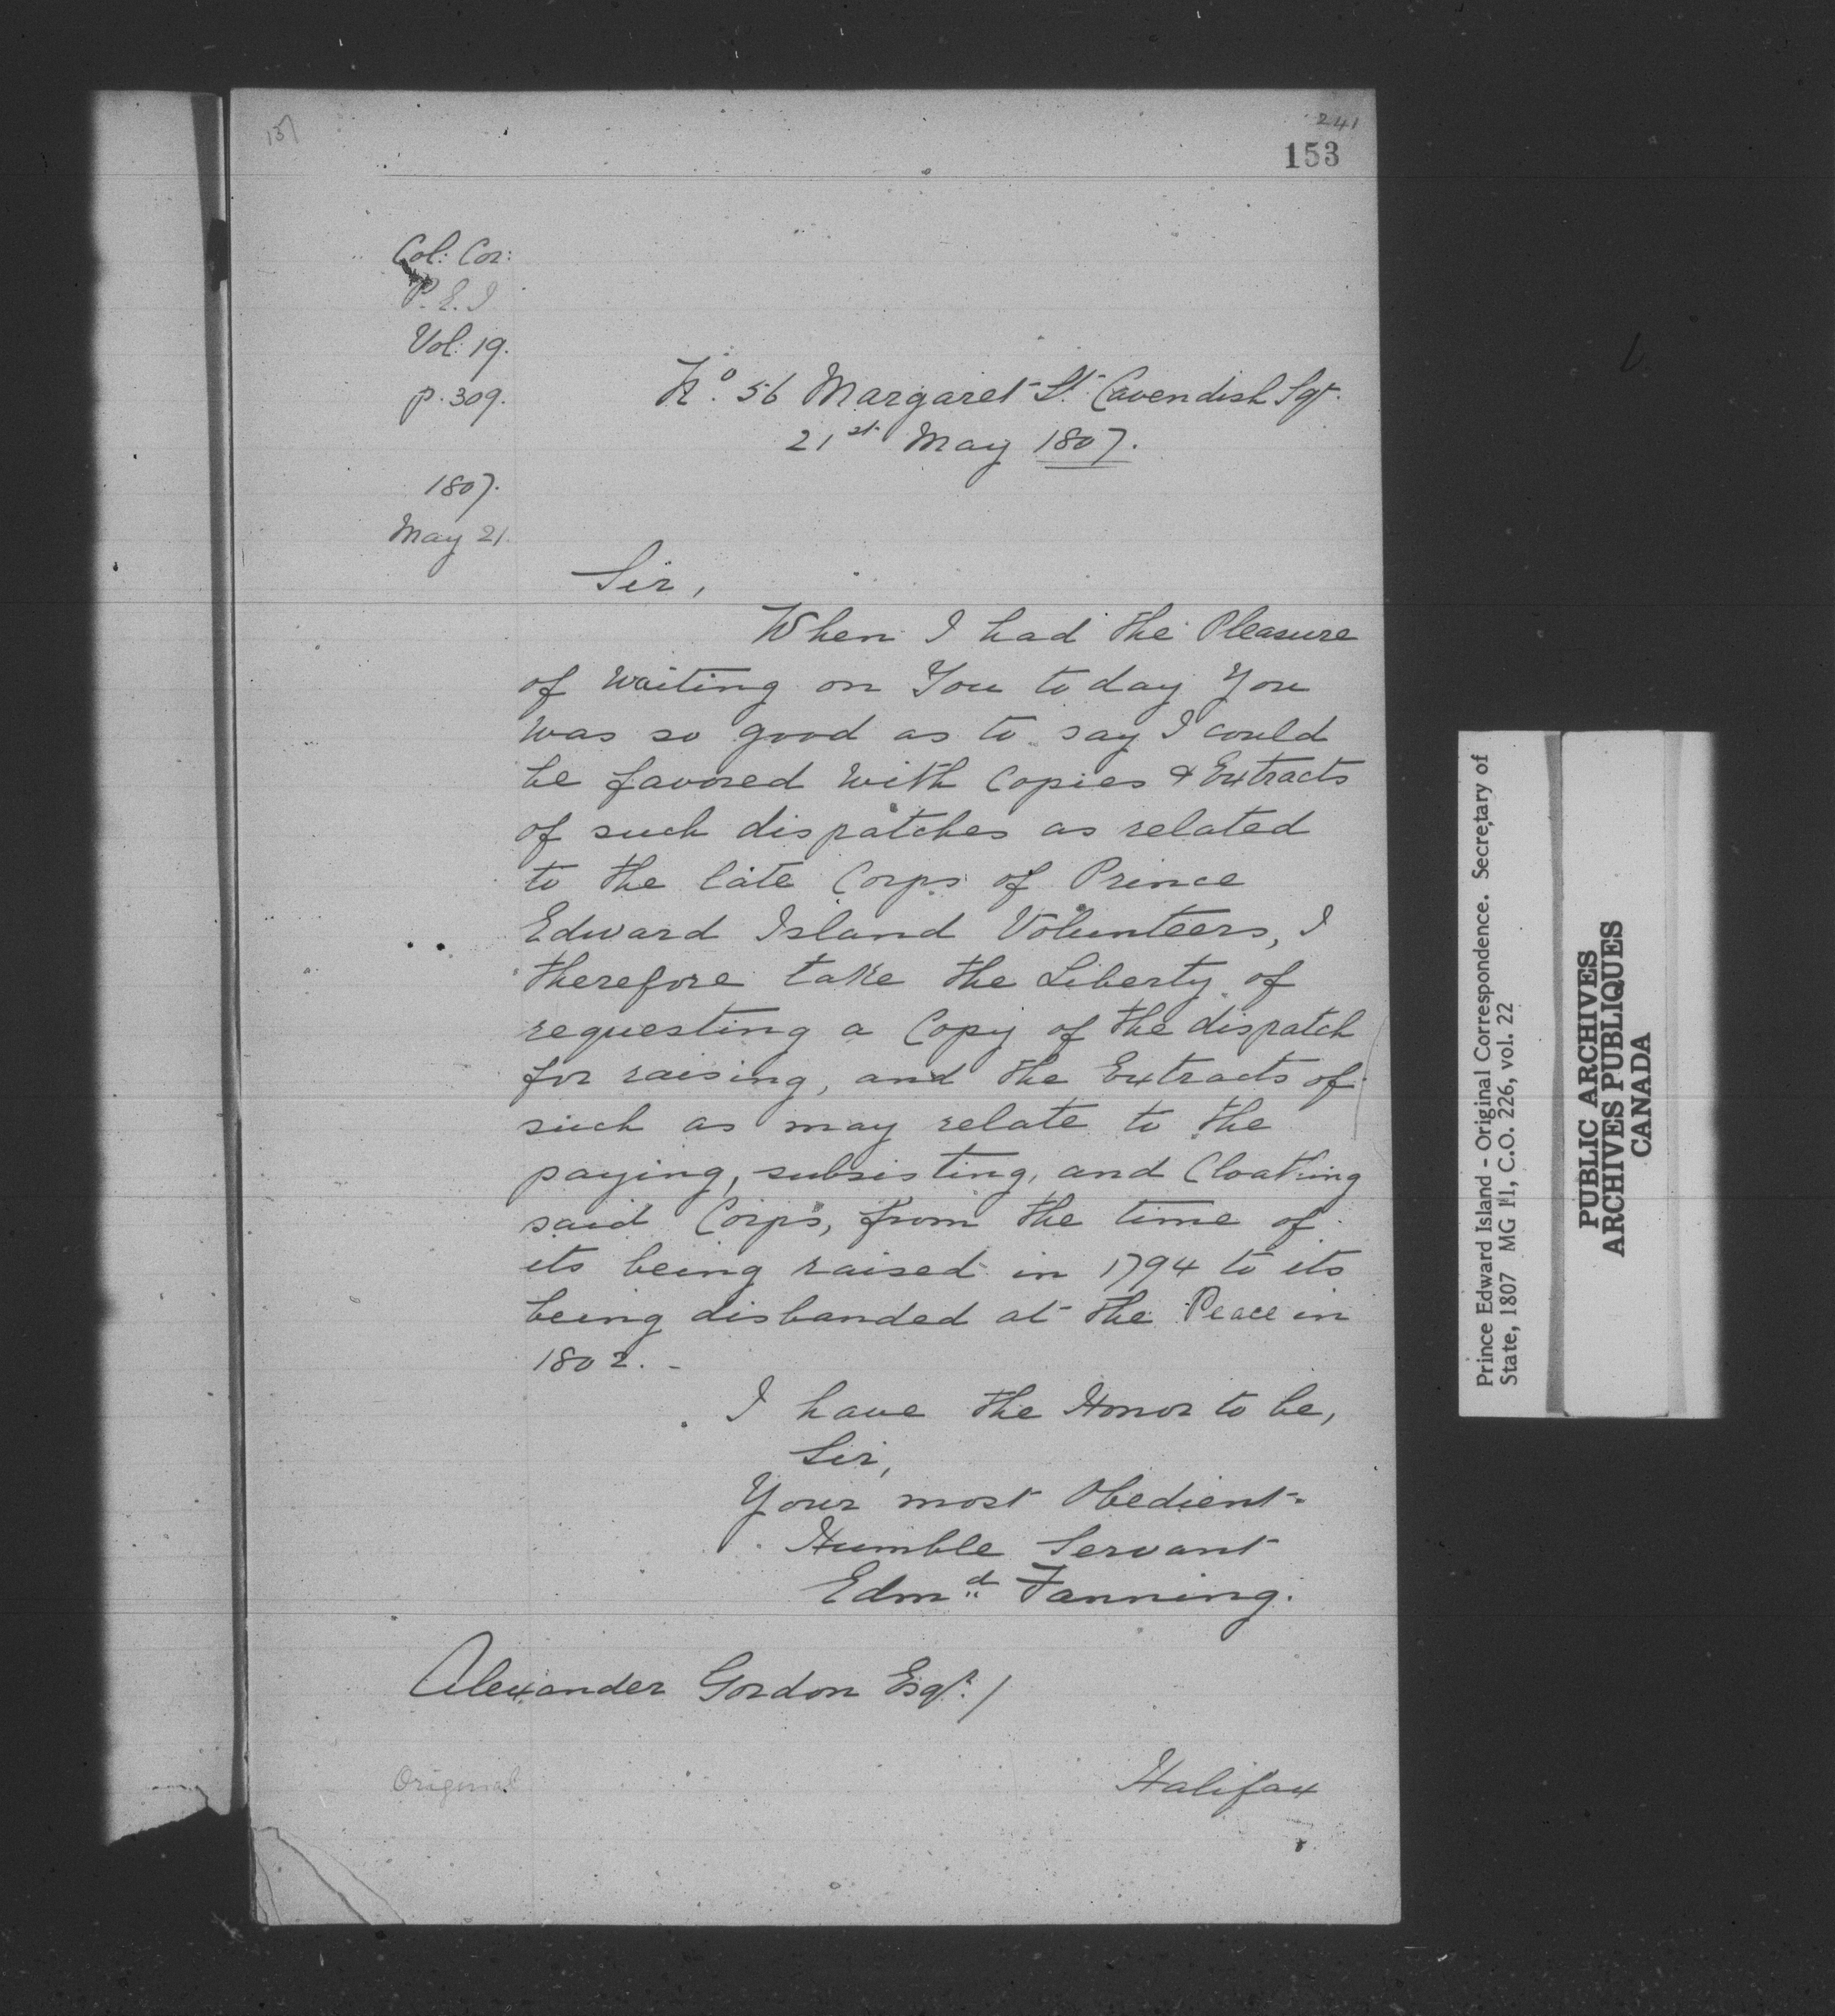 157
241
153
Col: Cor:
P.E.I
Vol: 19.
p. 309.
1807.
May 21.
No. 56 Margaret St. Cavendish Sqr.
21st May 1807.
Sir,
When I had the Pleasure
of waiting on You to day You
was so good as to say I could
be favored with Copies & Extracts
of such dispatches as related
to the late Corps of Prince
Edward Island Volunteers, I
therefore take the Liberty of
requesting a Copy of the dispatch
for raising, and the Extracts of
such as may relate to the
paying, subsisting, and Cloathing
said Corps, from the time of
its being raised in 1794 to its
being disbanded at the Peace in
1802. -
I have the Honor to be,
Sir,
Your most Obedient
Humble Servant
Edmd. Fanning.
Alexander Gordon Esqr. /
Original
Halifax
Prince Edward Island - Original Correspondence. Secretary of
State, 1807 MG 11, C.O. 226, vol. 22
PUBLIC ARCHIVES
ARCHIVES PUBLIQUES
CANADA